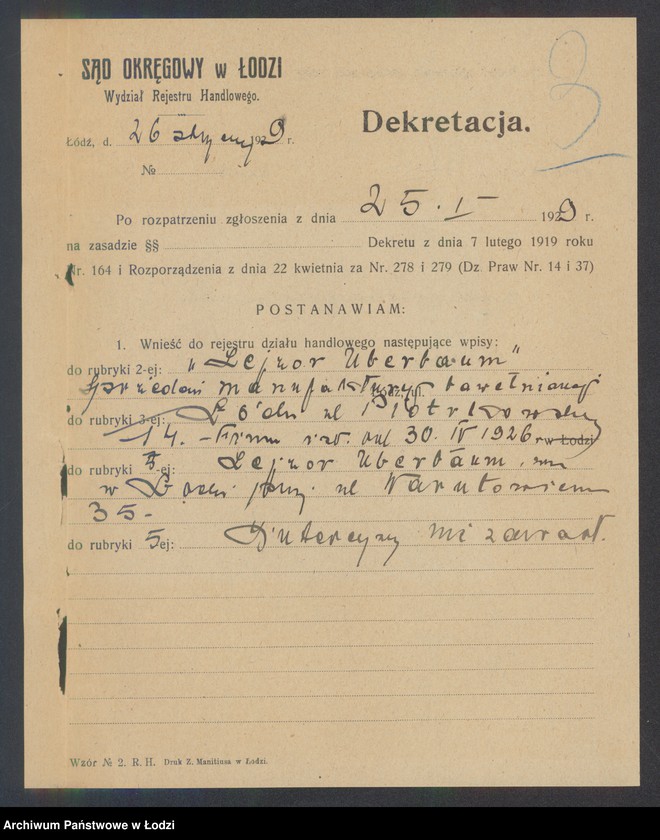 3
SĄD OKRĘGOWY w ŁODZI
Wydział Rejestru Handlowego.
Dekretacja.
Łódź, d. 26 stycznia 1929 r.
№
Po rozpatrzeniu zgłoszenia z dnia 25. I 1929 r.
na zasadzie §§ Dekretu z dnia 7 lutego 1919 roku
Nr. 164 i Rozporządzenia z dnia 22 kwietnia za Nr. 278 i 279 (Dz. Praw Nr. 14 i 37)
POSTANAWIAM:
1. Wnieść do rejestru działu handlowego następujące wpisy:
do rubryki 2-ej: "Lejzor Uberbaum"
Sprzedaż manufaktury bawełnianej
Łódź, ul.
do rubryki 3-ej: Łódź ul Piotrkowska
14. – Firma istn. od 30. IV 1926 r. w Łodzi
do rubryki -ej: Lejzor Uberbaum, zam
w Łodzi przy ul Narutowicza
35 –
do rubryki 5ej: Intercyzy nie zawarł.
Wzór № 2. R. H. Druk Z. Manitiusa w Łodzi.
Archiwum Państwowe w Łodzi